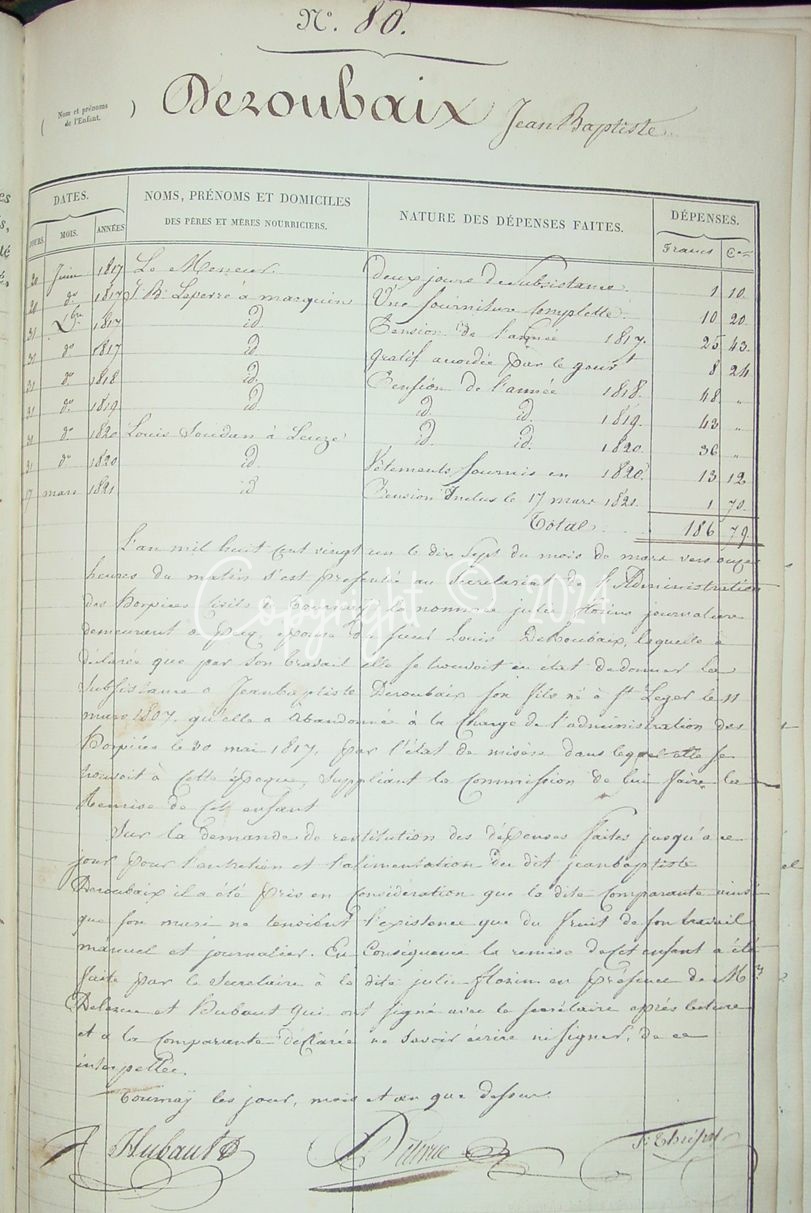 N.° 80.
Nom et prénoms de l'Enfant. Deroubaix Jean Baptiste
DATES. NOMS, PRÉNOMS ET DOMICILES DES PÈRES ET MÈRES NOURRICIERS. NATURE DES DÉPENSES FAITES. DÉPENSES.
JOURS. MOIS. ANNÉES Francs Ces
20 Juin 1817 Le Meneur deux jours de Subsistance 1 10
20 do 1817 J. B. Leperré à macquin Une fourniture complette 10 20
31 Xbre 1817 id Pension de l'année 1817. 25 43
31 do 1817 id gratif accordée par le gouvt 8 24
31 do 1818 id. Pension de l'année 1818. 48 "
31 do 1819 id. id id. 1819. 43 "
31 do 1820 Louis Soudan à Leuze id id. 1820. 36 "
31 do 1820 id. Vêtements fournis en 1820. 13 12
17 mars 1821 id Pension Inclus le 17 mars 1821. 1 70
Total. 186 79
L'an mil huit cent vingt un le dix Sept du mois de mars vers onze
heures du matin s'est présentée au Secretariat de l'Administration
des hospices Civils de Tournay la nommée julie florins journaliere
demeurant à pecq, épouse du sieur Louis DeRoubaix, laquelle a
déclarée que par son travail elle se trouvoit en état de donner la
Subsistance a Jean baptiste Deroubaix son fils né à St Leger le 11
mars 1807. qu'elle a abandonné à la Charge de l'administration des
hospices le 30 mai 1817. par l'état de misère dans lequel elle se
trouvoit à cette époque, suppliant la Commission de lui faire la
Remise de cet enfant
Sur la demande de restitution des dépenses faites jusqu'a ce
jour pour l'entretien et l'alimentation du dit jean baptiste
Deroubaix il a été pris en Consideration que la dite Comparante ainsi
que son mari ne tensibent l'existence que du fruit de son travail
manuel et journalier. En Conséquence la remise de cet enfant a été
faite par le Secretaire à la dite julie florin en présence de Mrs
Delarue et hubaut qui ont signé avec le secrétaire après lecture
et a la Comparante déclarée ne savoir écrire ni signer, de ce
interpellée.
Tournay les jour, mois et an que dessus.
Hubault Delarue
Copyright © 2024